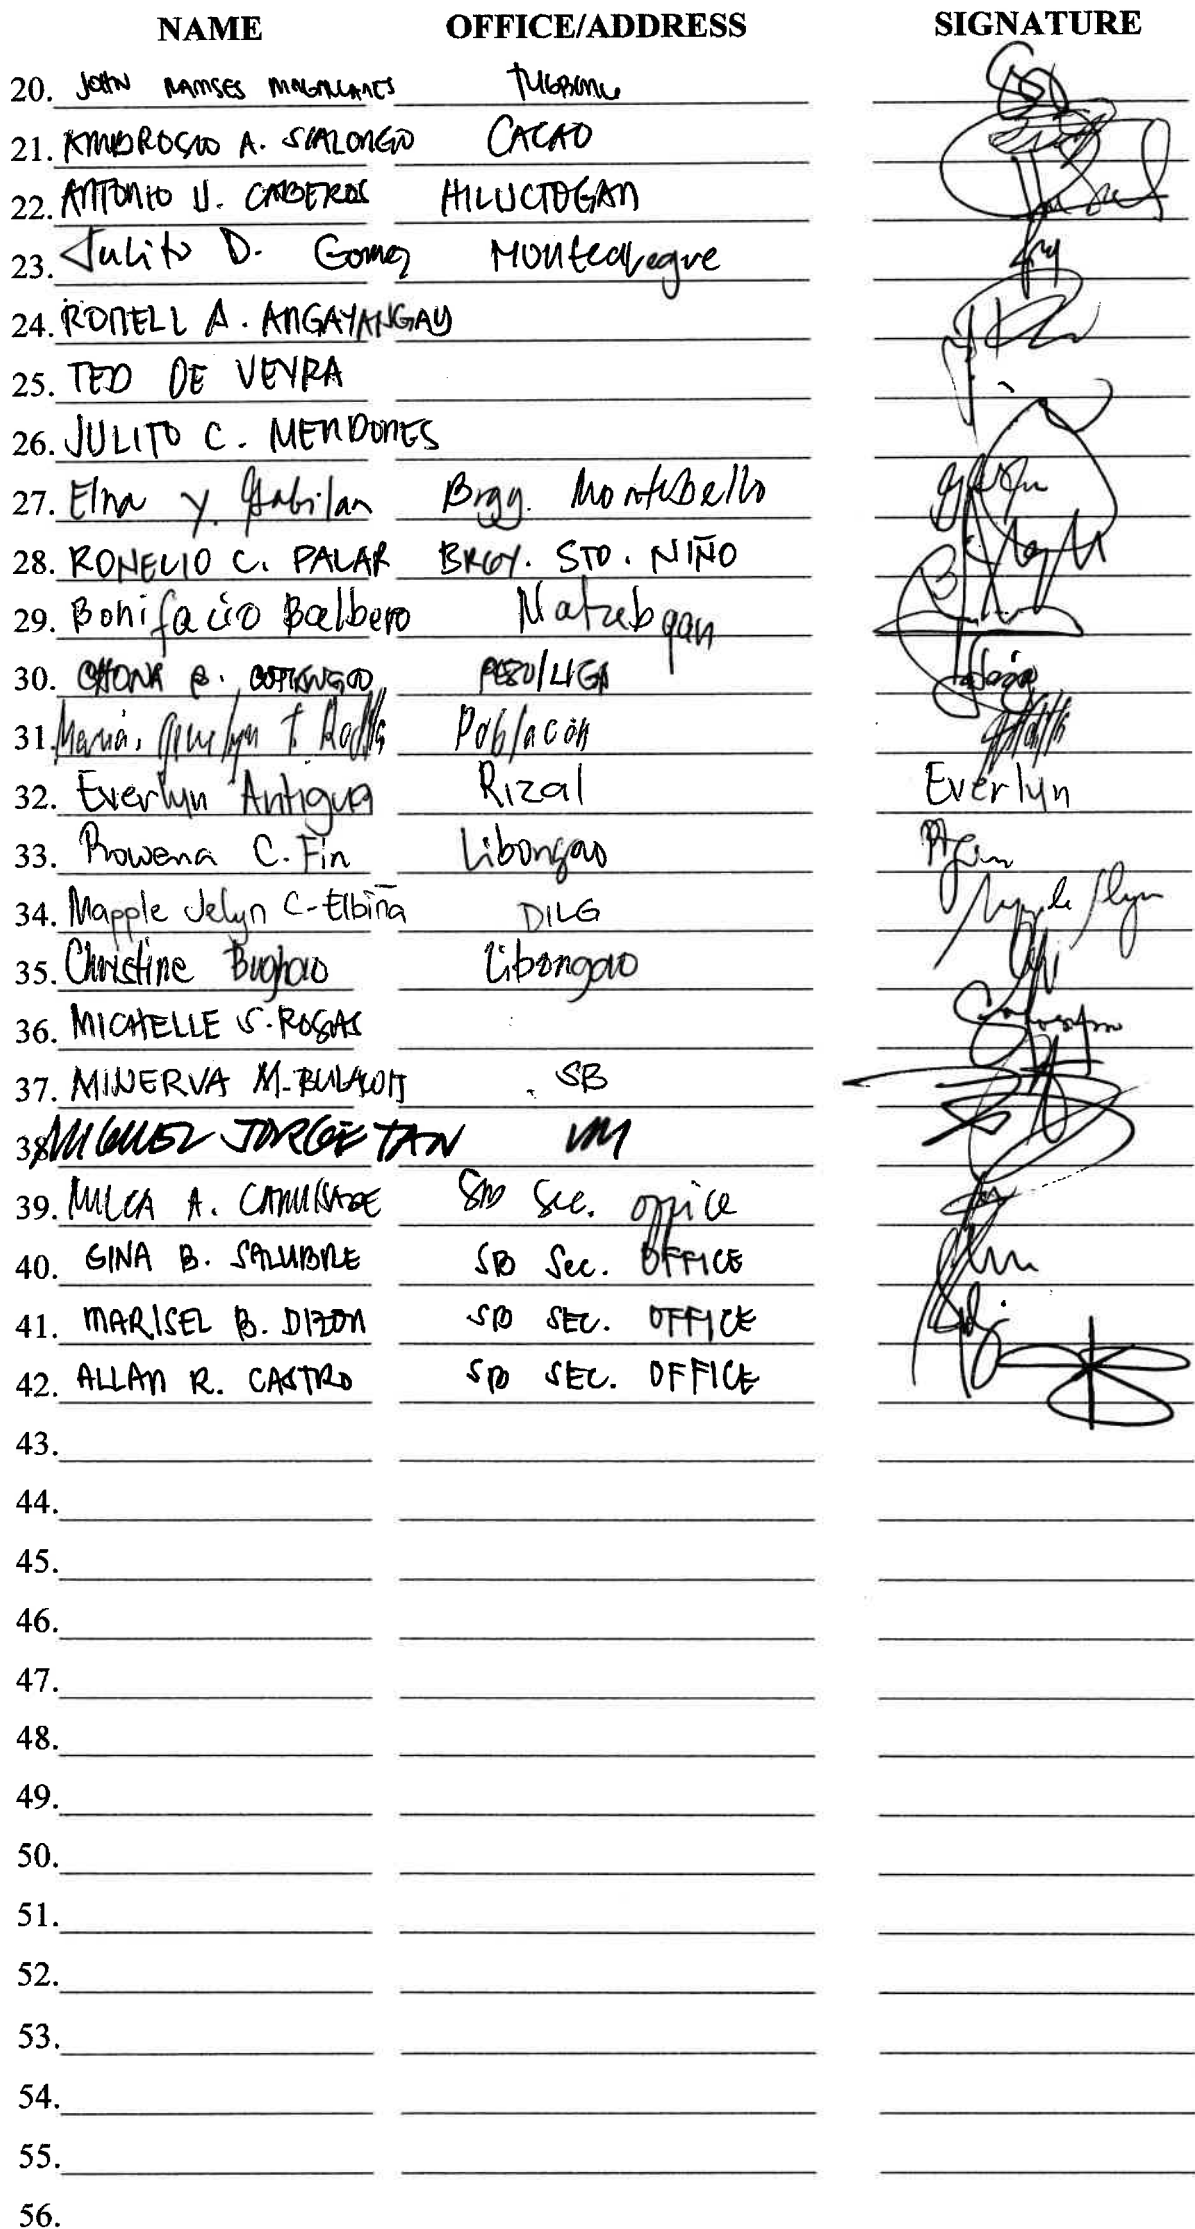 NAME OFFICE/ADDRESS SIGNATURE
20. JOHN RAMSES MAGALLANES
21. AMBROSIO A. SIALONGO CACAO
22. ANTONIO V. CABEROS HILUCTOGAN
23. Julito D. Gomez Montealegre
24. RONELL A. ANGAYANGAY
25. TED DE VEYRA
26. JULITO C. MENDONES
27. Elna Y. Gabilan Brgy. Montebello
28. RONELIO C. PALAR BRGY. STO. NIÑO
29. Bonifacio Balbero Natubgan
30. CHONA B. PESO/LIGA
31. Maria. T. Población
32. Everlyn Antigua Rizal Everlyn
33. Rowena C. Fin Libongao
34. Mapple Jelyn C-Elbiña DILG
35. Christine Bughao Libongao
36. MICHELLE S. ROSAS
37. MINERVA M. BULAWIT SB
38. MIGUEL JORGE TAN VM
39. MILCA A. SB Sec. office
40. GINA B. SALUBRE SB Sec. OFFICE
41. MARISEL B. DIZON SB SEC. OFFICE
42. ALLAN R. CASTRO SB SEC. OFFICE
43.
44.
45.
46.
47.
48.
49.
50.
51.
52.
53.
54.
55.
56.